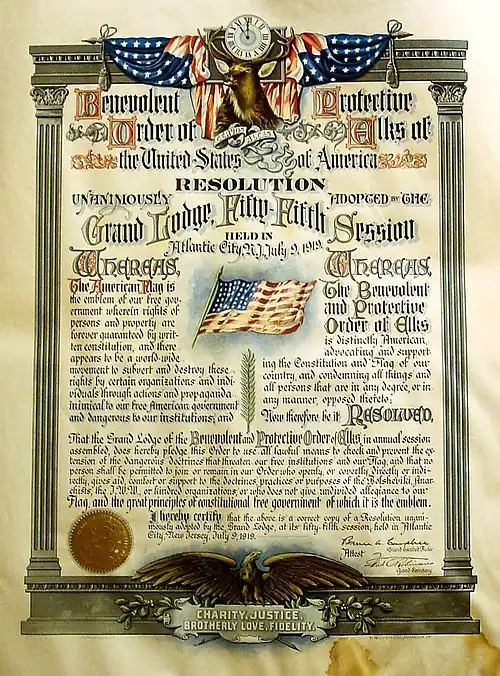 Benevolent Protective
Order of Elks of
the United States of America
RESOLUTION
UNANIMOUSLY ADOPTED BY THE
Grand Lodge, Fifty-Fifth Session
HELD IN
Atlantic City, N.J., July 9, 1919.
Whereas,
The American Flag is
the emblem of our free gov-
ernment wherein rights of
persons and property are
forever guaranteed by writ-
ten constitution, and there
appears to be a world-wide
movement to subvert and destroy these
rights by certain organizations and indi-
viduals through actions and propaganda
inimical to our free American government
and dangerous to our institutions; and
Whereas,
The Benevolent
and Protective
Order of Elks
is distinctly American,
advocating and support-
ing the Constitution and Flag of our
country, and condemning all things and
all persons that are in any degree, or in
any manner, opposed thereto;
Now therefore be it RESOLVED,
That the Grand Lodge of the Benevolent and Protective Order of Elks, in annual session
assembled, does hereby pledge this Order to use all lawful means to check and prevent the ex-
tension of the dangerous doctrines that threaten our free institutions and our Flag, and that no
person shall be permitted to join or remain in our Order who openly, or covertly, directly or indi-
rectly, gives aid, comfort or support to the doctrines, practices or purposes of the Bolsheviki, Anar-
chists, the I.W.W., or kindred organizations, or who does not give undivided allegiance to our
Flag, and the great principles of constitutional free government of which it is the emblem.
I hereby certify that the above is a correct copy of a Resolution unani-
mously adopted by the Grand Lodge, at its fifty-fifth session, held in Atlantic
City, New Jersey, July 9, 1919.
Grand Exalted Ruler
Attest
Grand Secretary
CHARITY, JUSTICE,
BROTHERLY LOVE, FIDELITY.